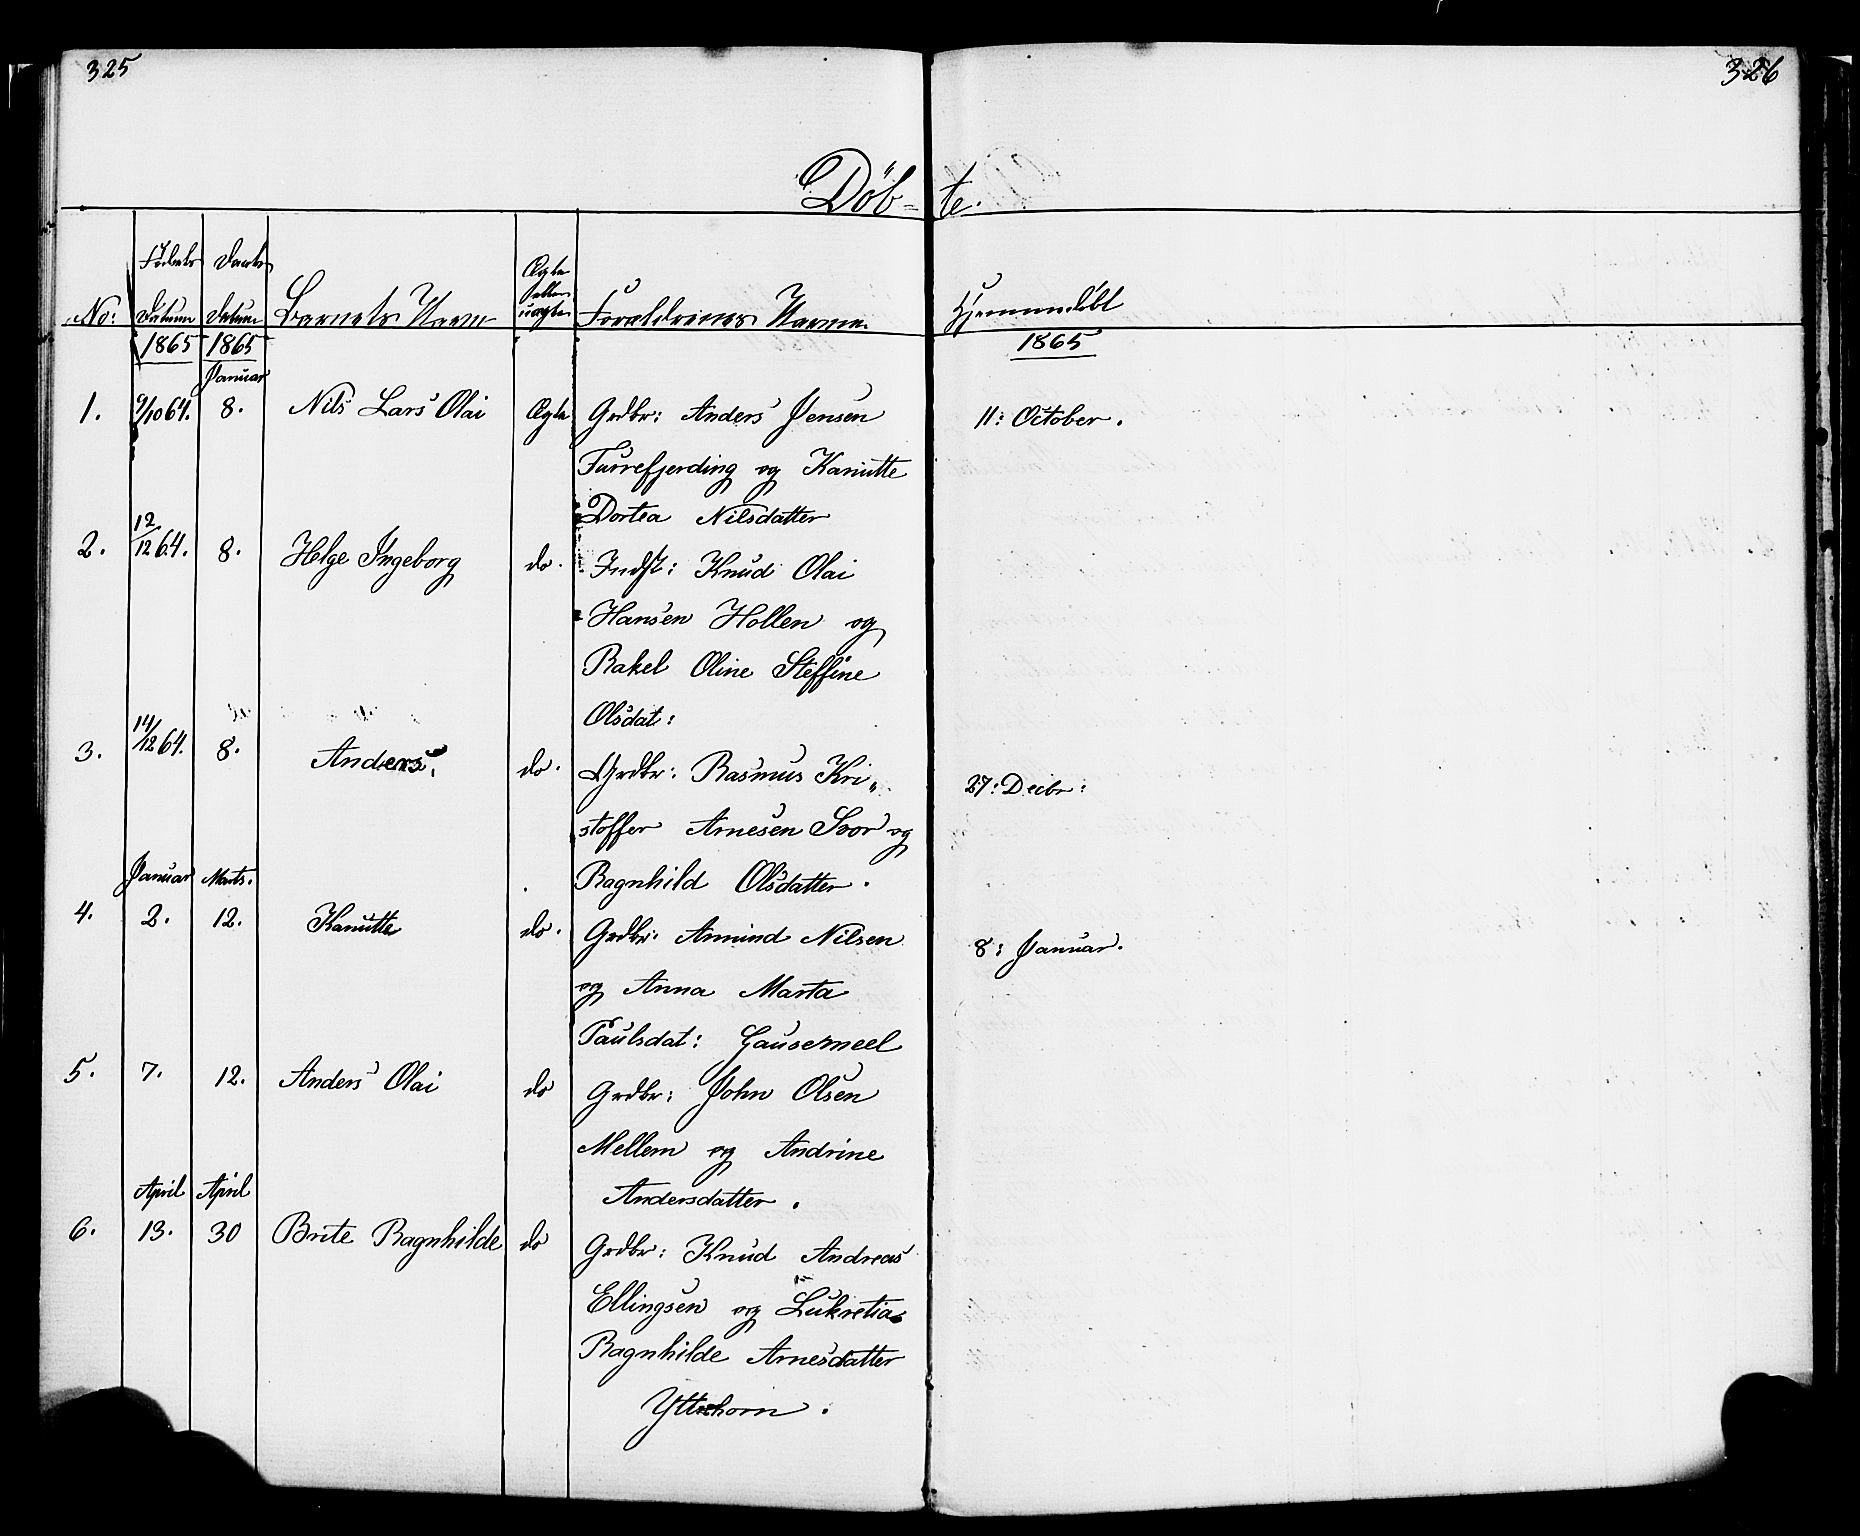 325
326
Döb-te.
No:
Födsels Datum
Daabs Datum
Barnets Navn
Ægte eller uægte
Forældrenes Navne.
Hjemmedöbt
1865
1865
1865
Januar
1. 9/10 64. 8. Nils Lars Olai Ægte Grdbr: Anders Jensen 11: October.
Furrefjerding og Kanutte
Dortea Nilsdatter
2. 12/12 64. 8. Helge Ingeborg do. Indst: Knud Olai
Hansen Hollen og
Rakel Oline Steffine
Olsdat:
3. 14/12 64. 8. Anders. do. Grdbr: Rasmus Kri„ 27: Decbr:
stoffer Arnesen Svor og
Ragnhild Olsdatter.
Januar Marts.
4. 2. 12. Kanutte do. Grdbr: Amund Nilsen 8: Januar.
og Anna Marta
Paulsdat: Gausemeel
5. 7. 12. Anders Olai do Grdbr: John Olsen
Mellem og Andrine
Andersdatter.
April April
6. 13. 30 Brite Ragnhilde do Grdbr: Knud Andreas
Ellingsen og Lukretia
Ragnhilde Arnesdatter
Ytterhorn.